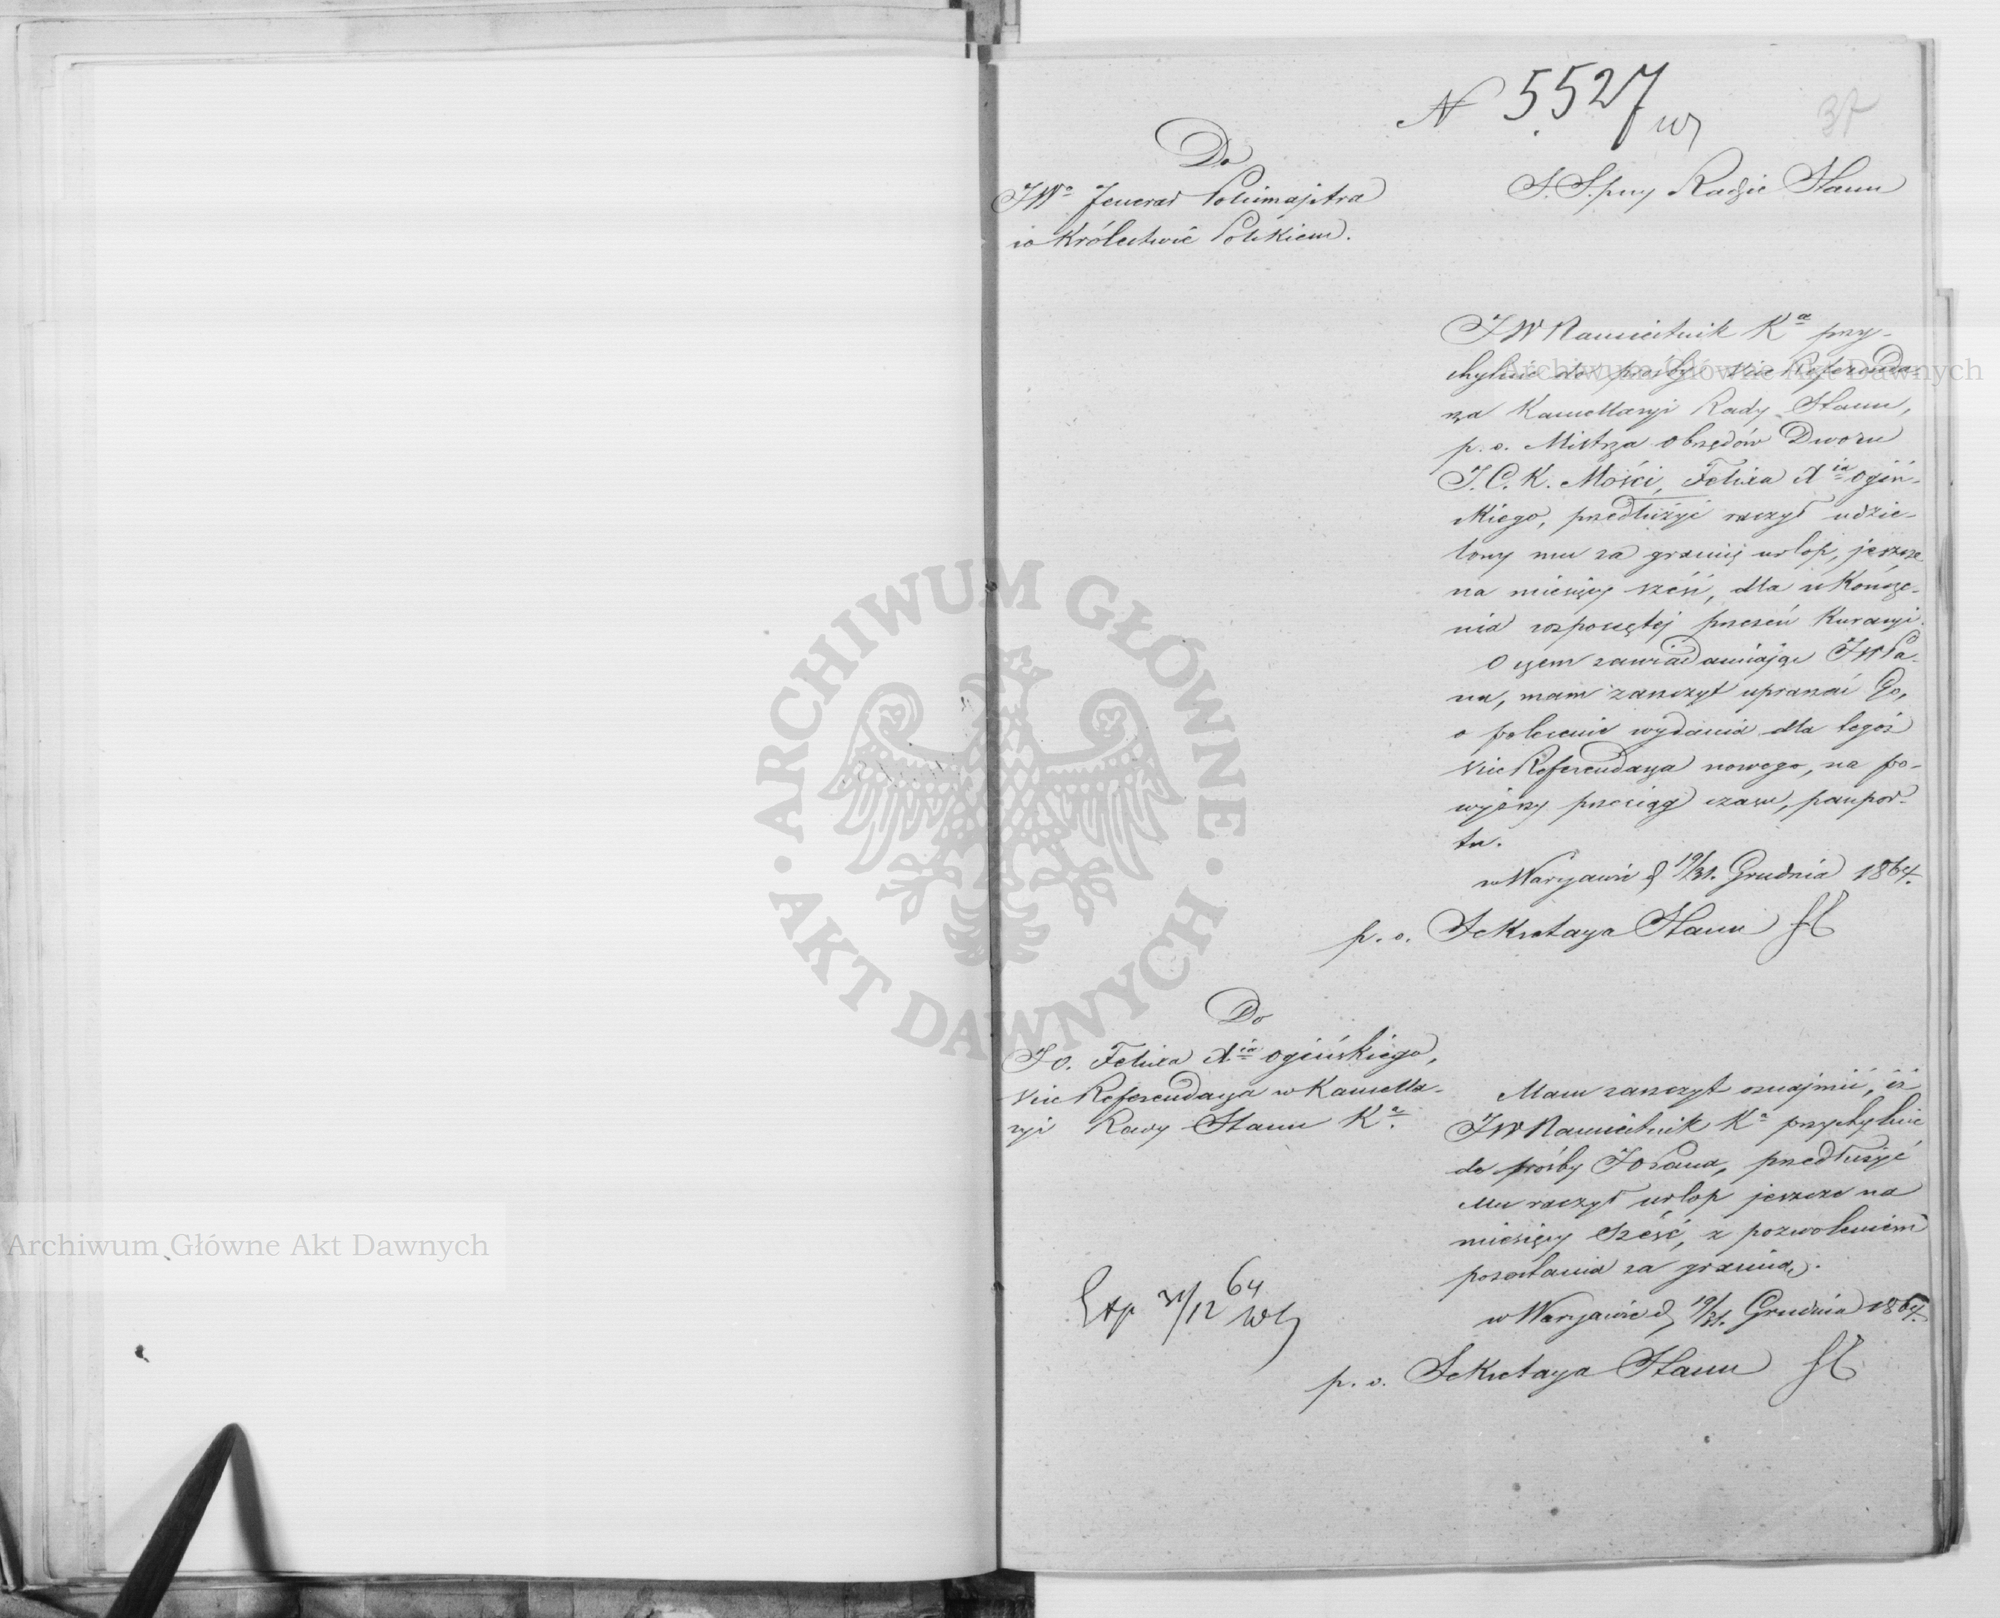 N 5527
37
Do
JWo Jenerał Policmajstra
w Królestwie Polskiem.
S. S. przy Radzie Stanu
JW Namiestnik Ka przy-
chylnie do prośby Vice Referenda-
rza Kancellaryi Rady Stanu,
p. o. Mistrza obrzędów Dworu
J. C. K. Mości, Felixa Xia Ogiń-
skiego, przedłużyć raczył udzie-
lony mu za granicę urlop, jeszcze
na miesięcy sześć, dla ukończe-
nia rozpoczętej przezeń Kuracyi.
O czem zawiadamiając JWPa-
na, mam zaszczyt upraszać Go,
o polecenie wydania dla tegoż
Vice Referendarza nowego, na po-
wyższy przeciąg czasu, paszpor-
tu.
w Warszawie d 19/31. Grudnia 1864.
p. o. Sekretarza Stanu
Do
JO. Felixa Xia Ogińskiego,
Vice Referendarza w Kancella-
ryi Rady Stanu Ka.
Mam zaszczyt oznajmić, iż
JW Namiestnik Ka przychylnie
do prośby JO Pana, przedłużyć
Mu raczył urlop jeszcze na
miesięcy sześć, z pozwoleniem
pozostania za granicą.
w Warszawie d 19/31. Grudnia 1864.
Exp 31/12 64
p. o. Sekretarza Stanu
Archiwum Główne Akt Dawnych
Archiwum Główne Akt Dawnych
ARCHIWUM GŁÓWNE · AKT DAWNYCH ·